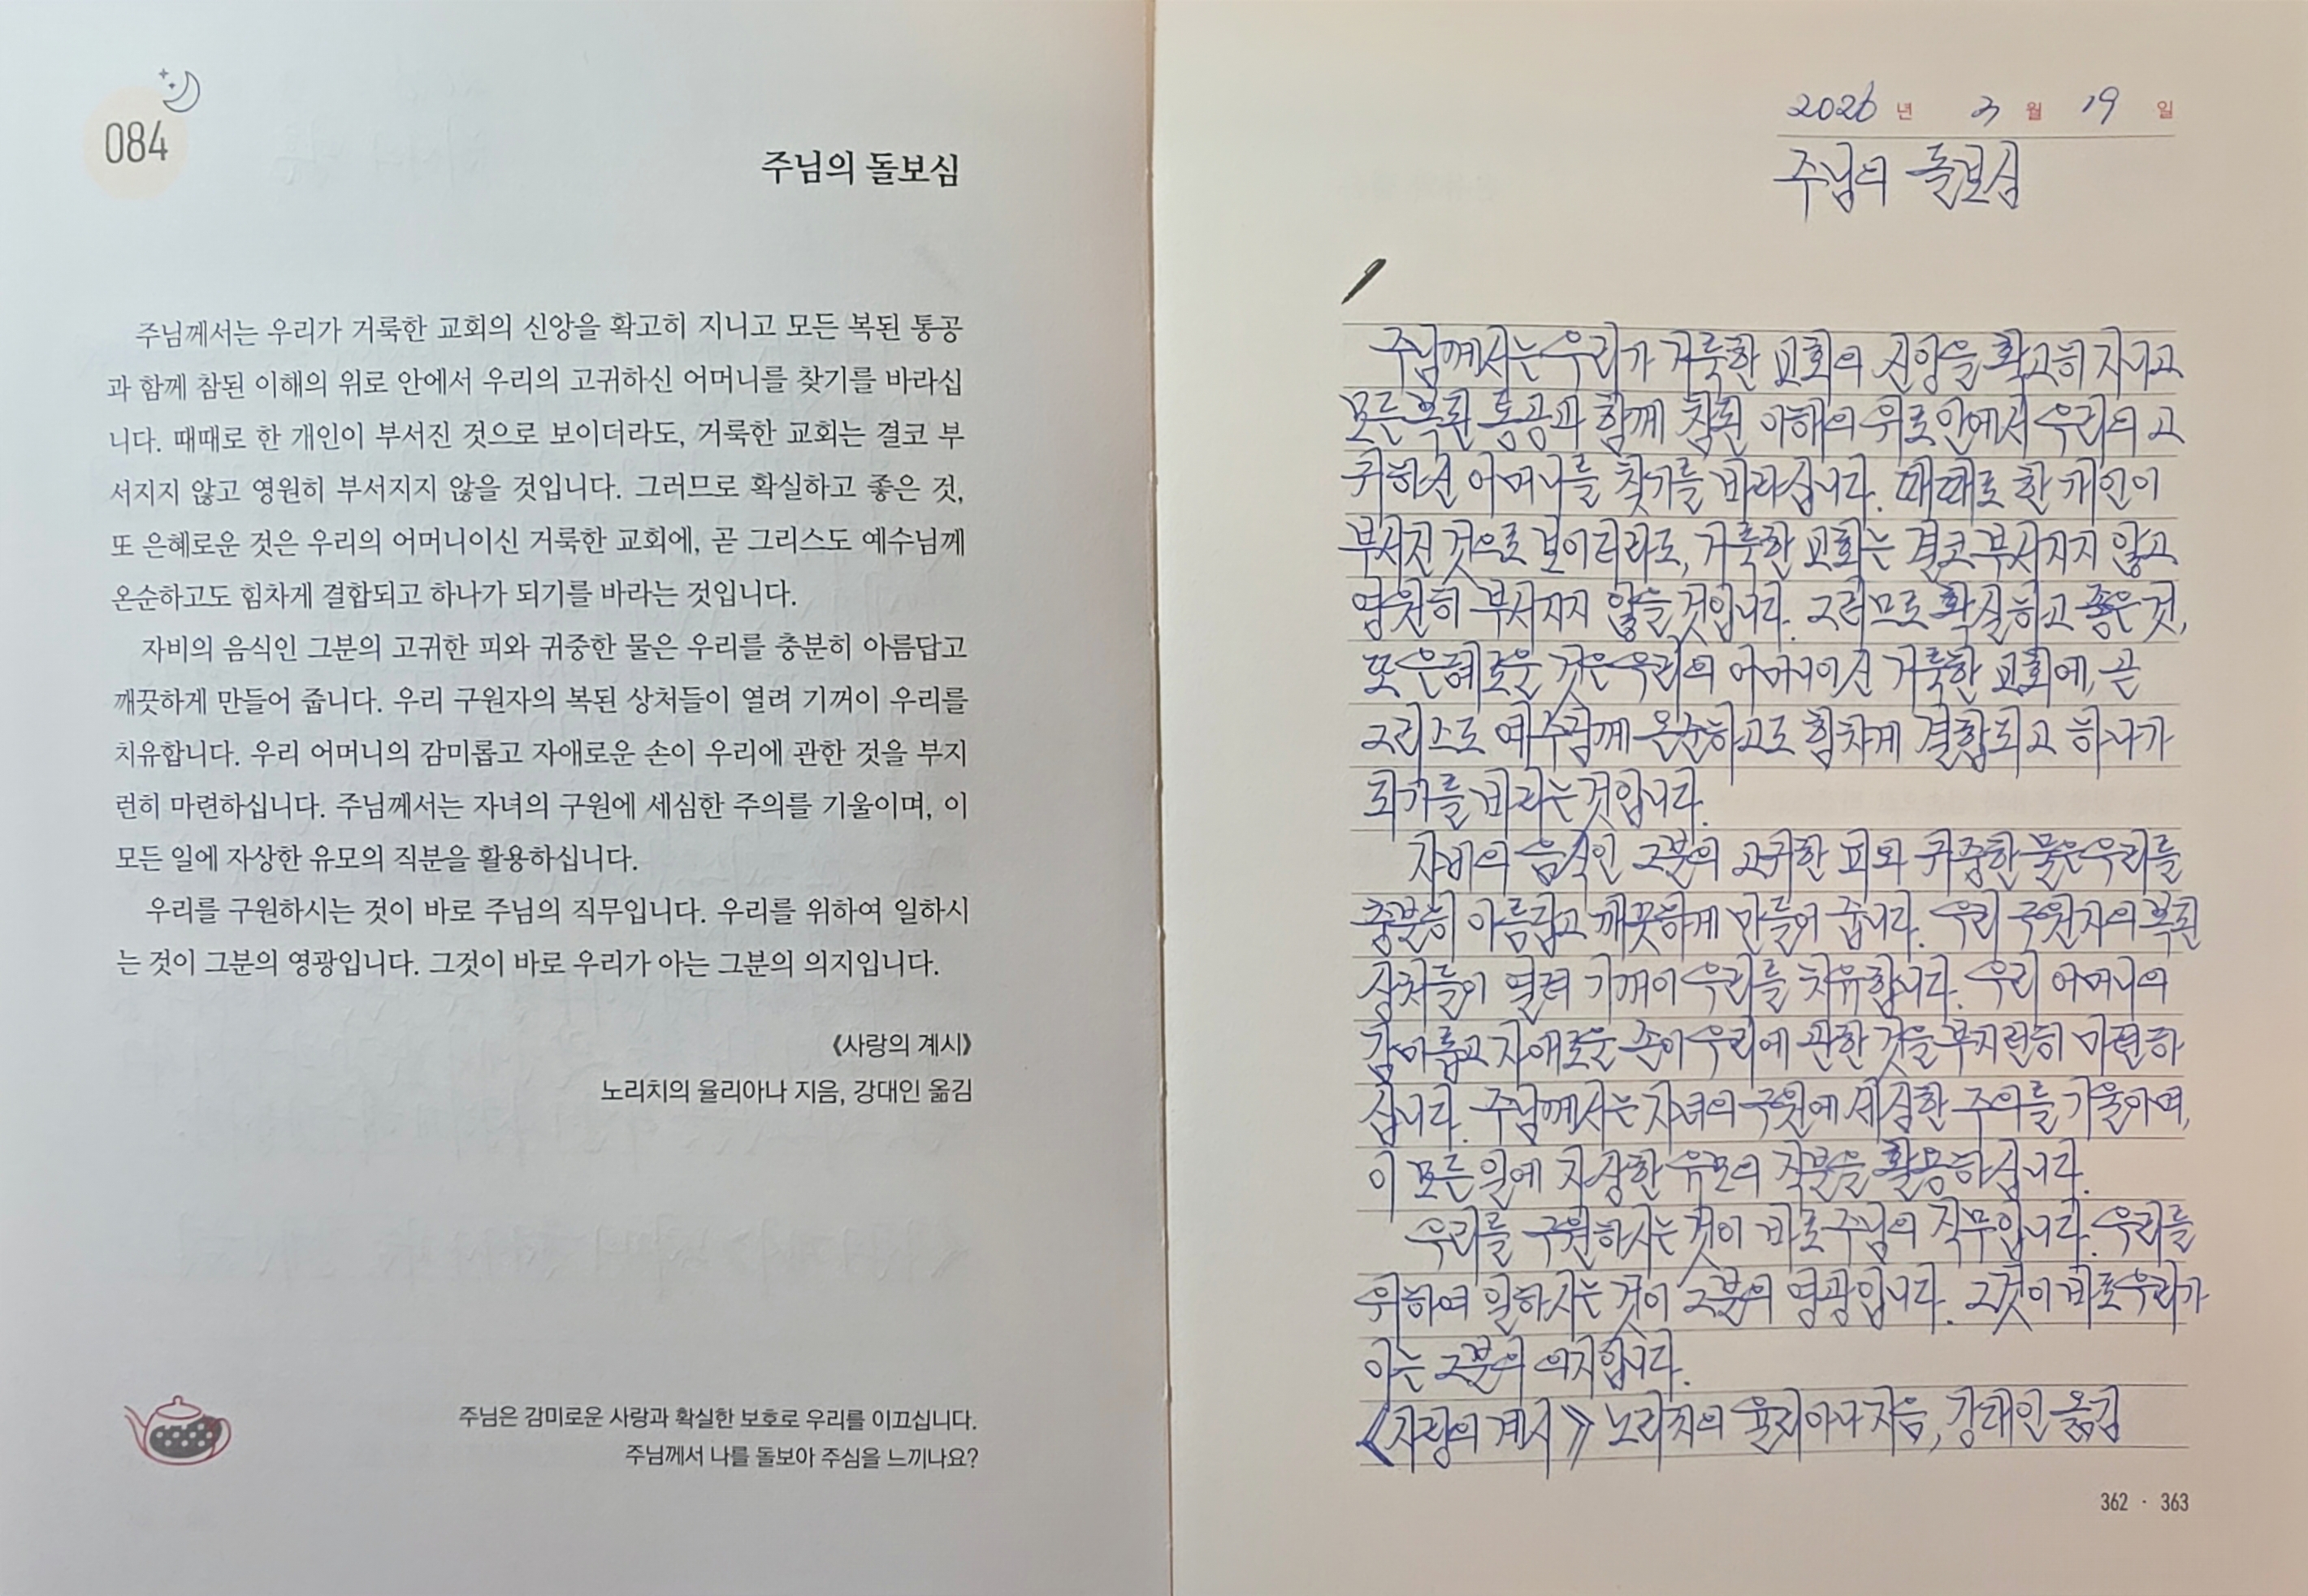 084
주님의 돌보심
주님께서는 우리가 거룩한 교회의 신앙을 확고히 지니고 모든 복된 통공
과 함께 참된 이해의 위로 안에서 우리의 고귀하신 어머니를 찾기를 바라십
니다. 때때로 한 개인이 부서진 것으로 보이더라도, 거룩한 교회는 결코 부
서지지 않고 영원히 부서지지 않을 것입니다. 그러므로 확실하고 좋은 것,
또 은혜로운 것은 우리의 어머니이신 거룩한 교회에, 곧 그리스도 예수님께
온순하고도 힘차게 결합되고 하나가 되기를 바라는 것입니다.
자비의 음식인 그분의 고귀한 피와 귀중한 물은 우리를 충분히 아름답고
깨끗하게 만들어 줍니다. 우리 구원자의 복된 상처들이 열려 기꺼이 우리를
치유합니다. 우리 어머니의 감미롭고 자애로운 손이 우리에 관한 것을 부지
런히 마련하십니다. 주님께서는 자녀의 구원에 세심한 주의를 기울이며, 이
모든 일에 자상한 유모의 직분을 활용하십니다.
우리를 구원하시는 것이 바로 주님의 직무입니다. 우리를 위하여 일하시
는 것이 그분의 영광입니다. 그것이 바로 우리가 아는 그분의 의지입니다.
《사랑의 계시》
노리치의 율리아나 지음, 강대인 옮김
주님은 감미로운 사랑과 확실한 보호로 우리를 이끄십니다.
주님께서 나를 돌보아 주심을 느끼나요?
2026 년 3 월 19 일
주님의 돌보심
주님께서는 우리가 거룩한 교회의 신앙을 확고히 지니고
모든 복된 통공과 함께 참된 이해의 위로 안에서 우리의 고
귀하신 어머니를 찾기를 바라십니다. 때때로 한 개인이
부서진 것으로 보이더라도, 거룩한 교회는 결코 부서지지 않고
영원히 부서지지 않을 것입니다. 그러므로 확실하고 좋은 것,
또 은혜로운 것은 우리의 어머니이신 거룩한 교회에, 곧
그리스도 예수님께 온순하고도 힘차게 결합되고 하나가
되기를 바라는 것입니다.
자비의 음식인 그분의 고귀한 피와 귀중한 물은 우리를
충분히 아름답고 깨끗하게 만들어 줍니다. 우리 구원자의 복된
상처들이 열려 기꺼이 우리를 치유합니다. 우리 어머니의
감미롭고 자애로운 손이 우리에 관한 것을 부지런히 마련하
십니다. 주님께서는 자녀의 구원에 세심한 주의를 기울이며,
이 모든 일에 자상한 유모의 직분을 활용하십니다.
우리를 구원하시는 것이 바로 주님의 직무입니다. 우리를
위하여 일하시는 것이 그분의 영광입니다. 그것이 바로 우리가
아는 그분의 의지입니다.
《사랑의 계시》 노리치의 율리아나 지음, 강대인 옮김
362 · 363